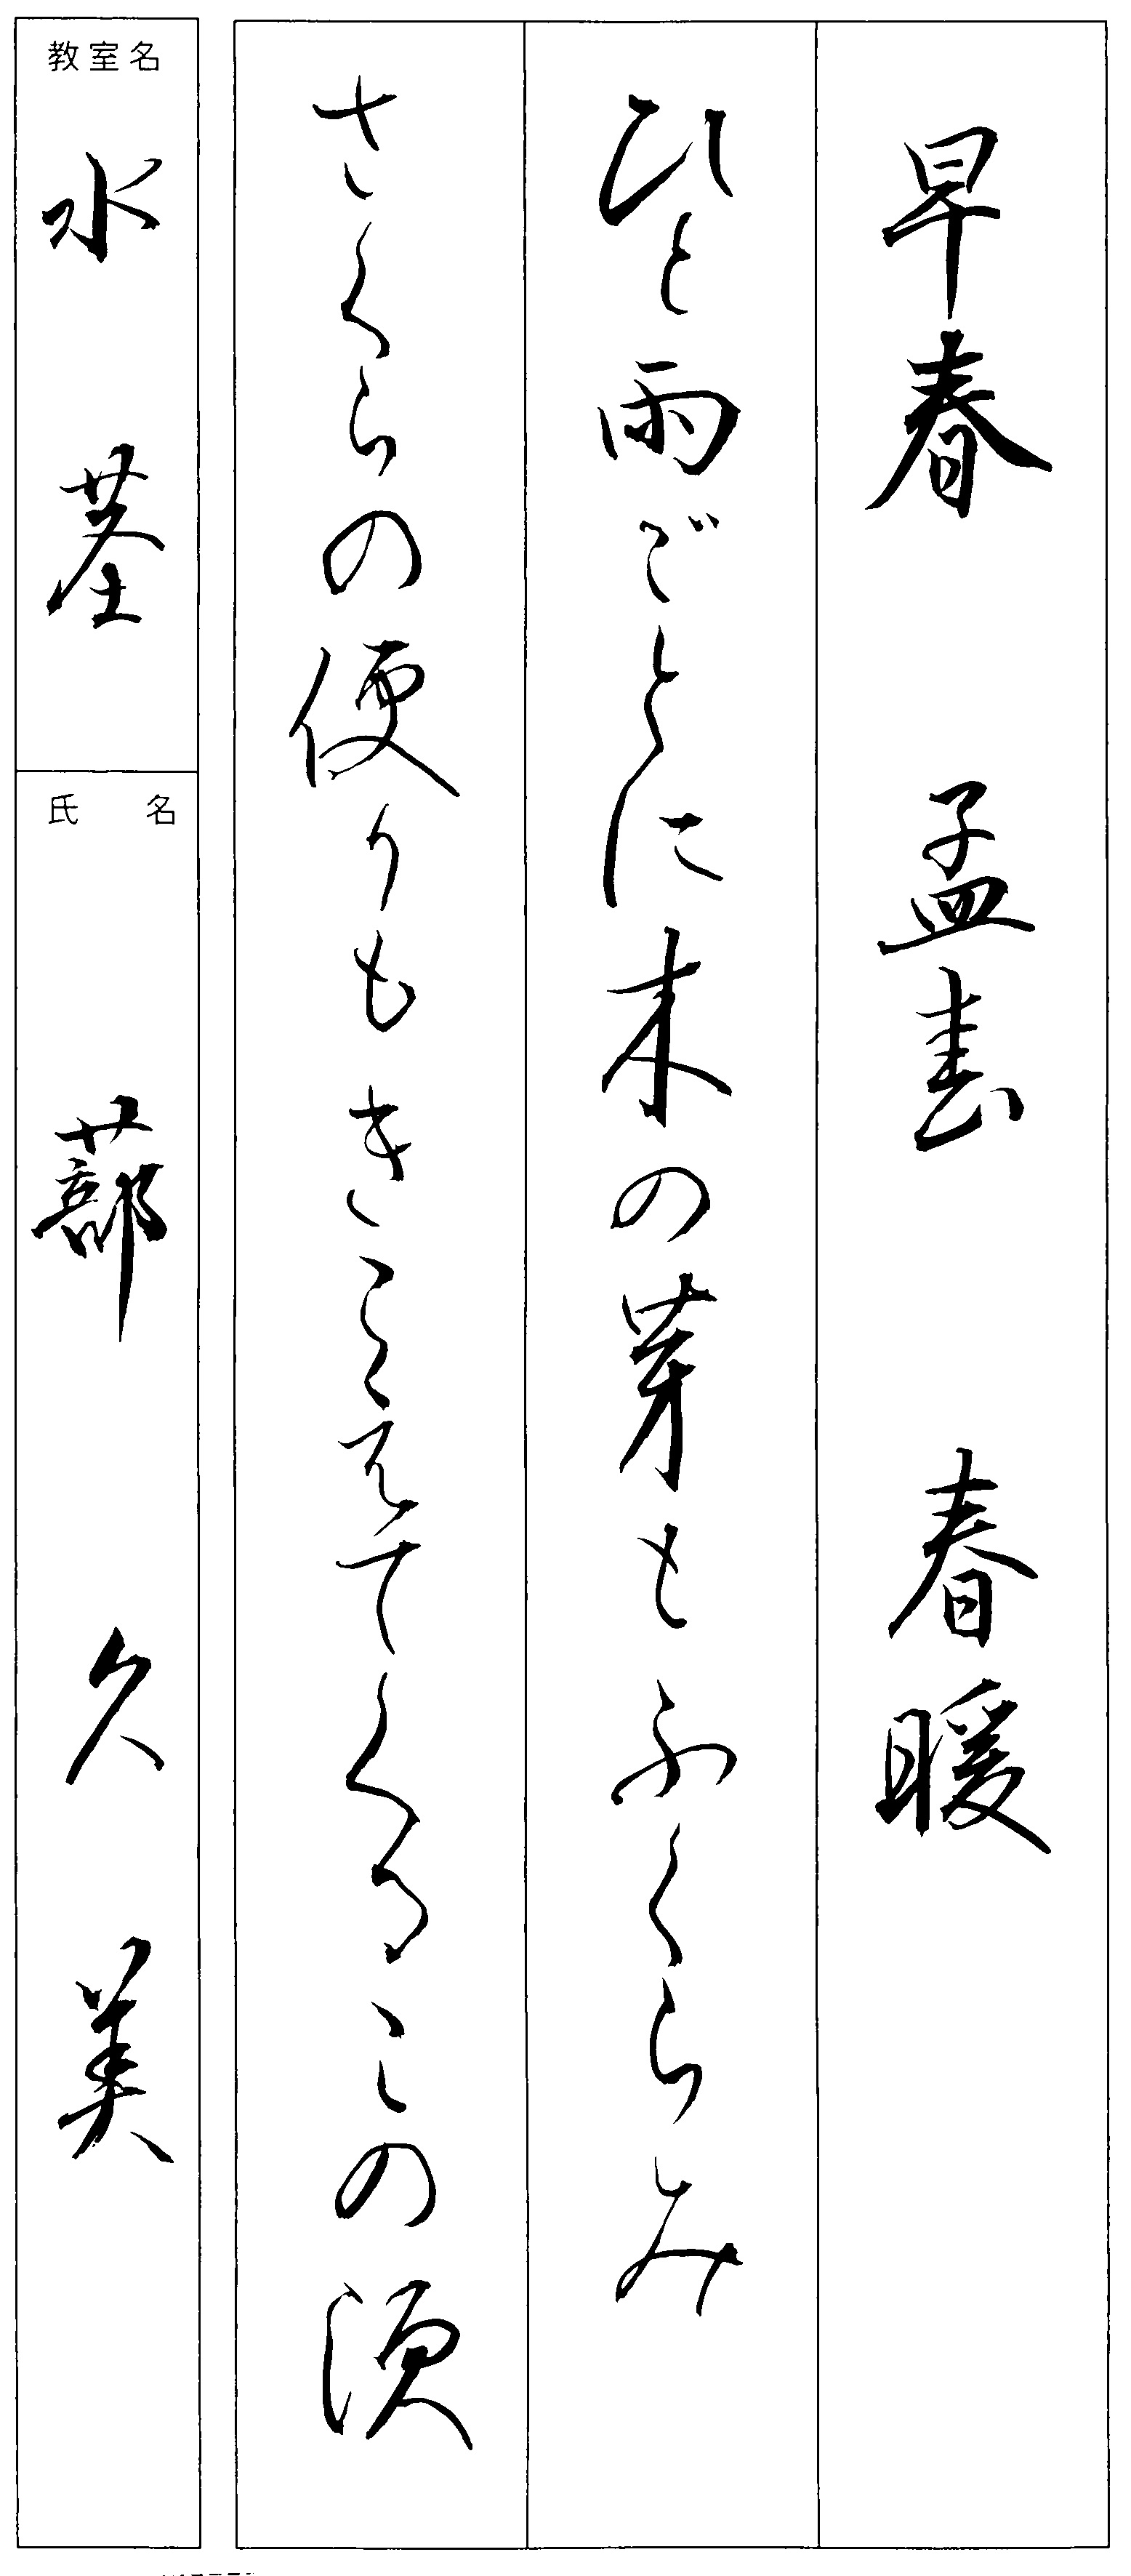 早春 孟春 春暖
ひと雨ごとに木の芽もふくらみ
さくらの便りもきこえてくるこの頃
教室名
水茎
氏名
蔀 久美